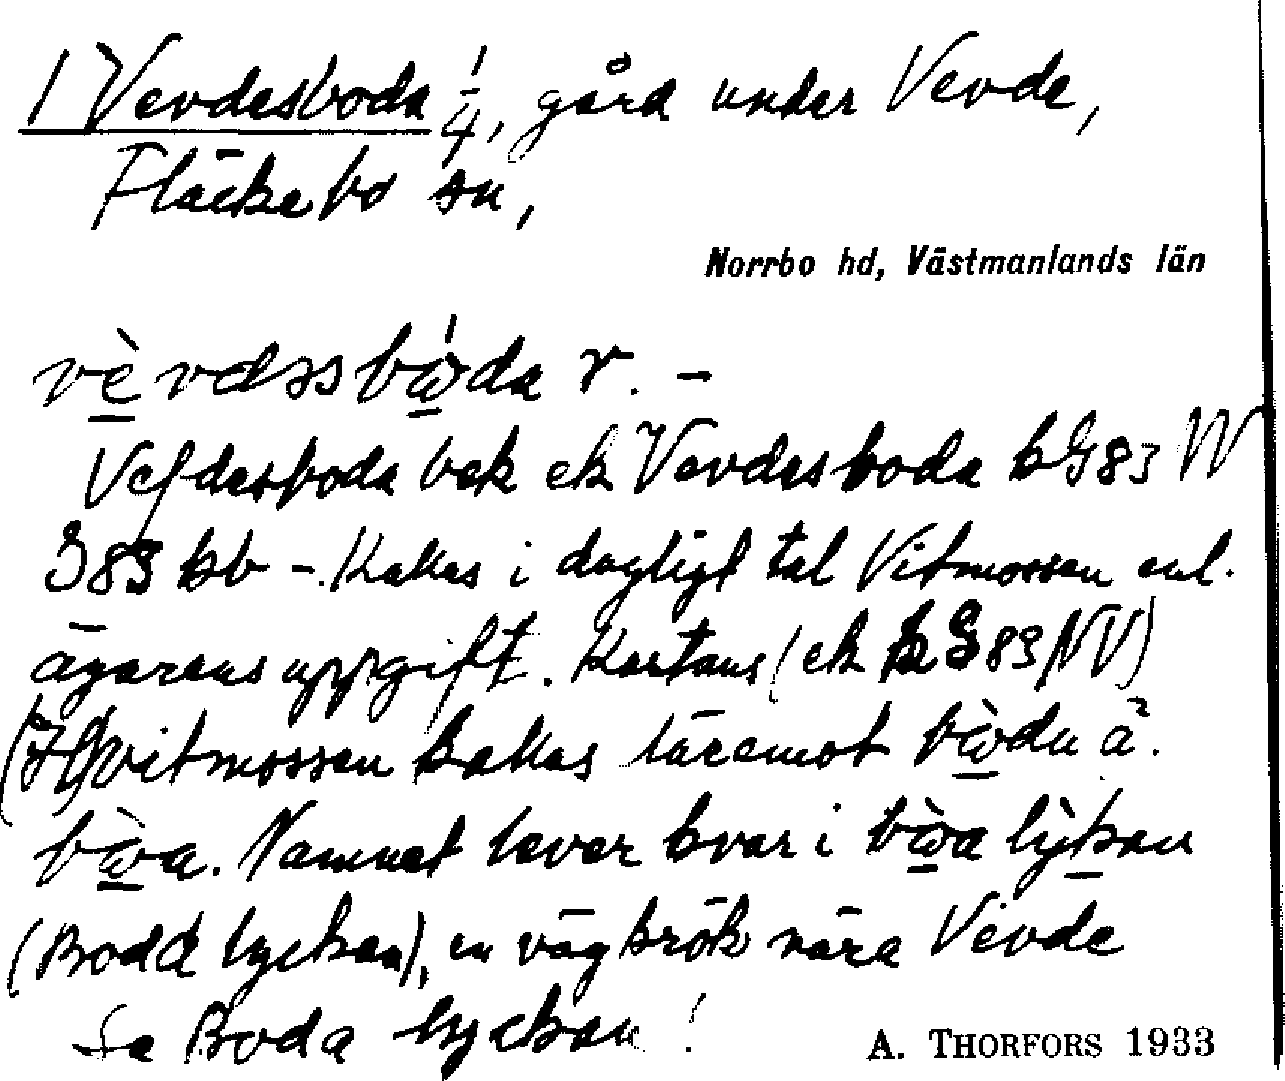 1 Vevdesboda 1/4, gård under Vevde,
Fläckebo sn,
Norrbo hd, Västmanlands län
vèvdəsbὼda r. –
Vefdesboda bek ek Vevdesboda hG83 NV
G83 kb –. Kallas i dagligt tal Vitmossen enl.
ägarens uppgift. Kartans (ek k G83 NV)
(H)vitmossen kallas däremot bὼda ä.
bὼa. Namnet lever kvar i bὼa lỳkan
(Boda lyckan), en vägkrök nära Vevde
Se Boda lyckan!
A. THORFORS 1933